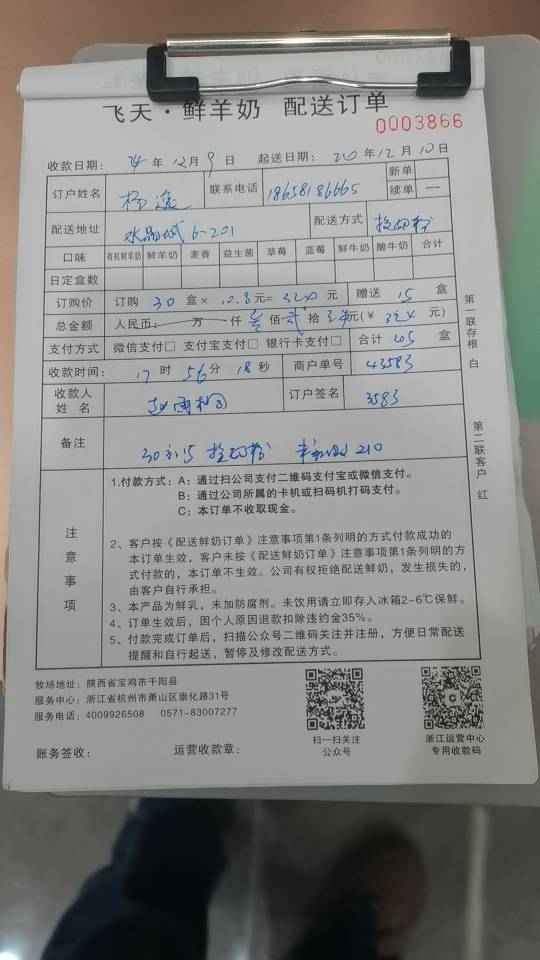 飞天·鲜羊奶 配送订单
0003866
收款日期： 24 年 12 月 9 日 起送日期： 210 年 12 月 10 日
订户姓名 杨逸 联系电话 18658186665 新单
续单 一
配送地址 水晶城 6-201 配送方式
口味 有机鲜羊奶 鲜羊奶 麦香 益生菌 草莓 蓝莓 鲜牛奶 酸牛奶 合计
日定盒数
订购价 订购 30 盒× 10.8 元= 324 元 赠送 15 盒
总金额 人民币： 万 仟 叁 佰 贰 拾 元(￥ 324 元)
支付方式 微信支付□ 支付宝支付□ 银行卡支付□ 合计 45 盒
收款时间： 17 时 56 分 18 秒 商户单号 43583
收款人
姓 名 订户签名 3583
备注 30 15 210
第一联存根 白
第二联客户 红
注意事项
1.付款方式：A：通过扫公司支付二维码支付宝或微信支付。
B：通过公司所属的卡机或扫码机打码支付。
C：本订单不收取现金。
2、客户按《配送鲜奶订单》注意事项第1条列明的方式付款成功的
本订单生效，客户未按《配送鲜奶订单》注意事项第1条列明的方
式付款的，本订单不生效。公司有权拒绝配送鲜奶，发生损失的，
由客户自行承担。
3、本产品为鲜乳，未加防腐剂。未饮用请立即存入冰箱2-6℃保鲜。
4、订单生效后，因个人原因退款扣除违约金35%。
5、付款完成订单后，扫描公众号二维码关注并注册，方便日常配送
提醒和自行起送，暂停及修改配送方式。
牧场地址：陕西省宝鸡市千阳县
服务中心：浙江省杭州市萧山区崇化路31号
服务电话：4009926508 0571-83007277
扫一扫关注
公众号
浙江运营中心
专用收款码
账务签收： 运营收款章：